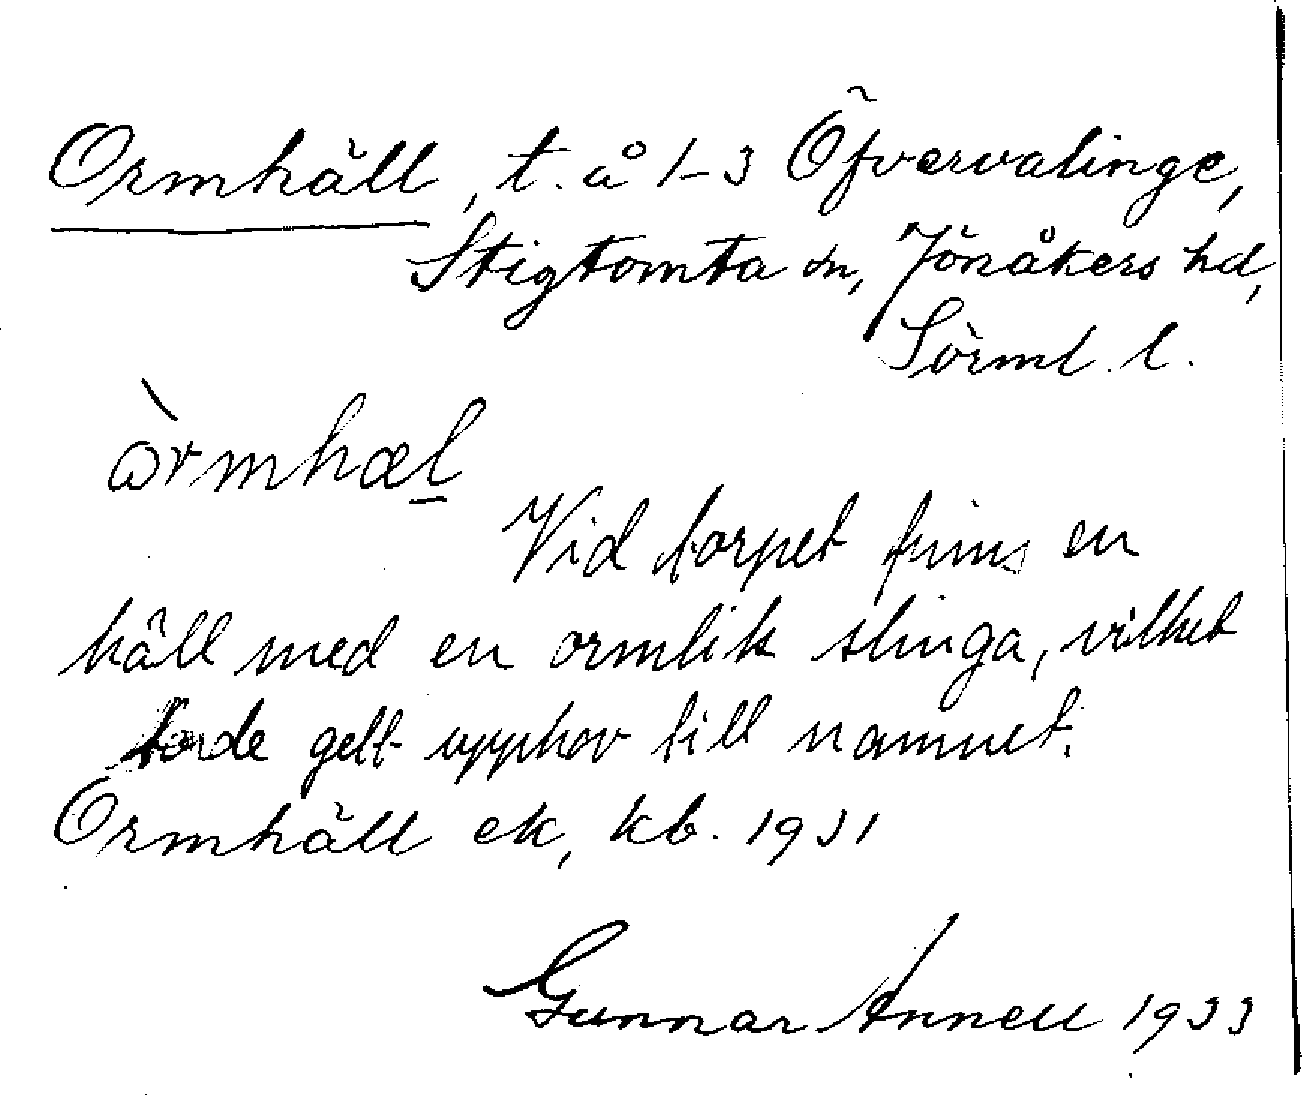 Ormhäll, t. å 1-3 Öfvervalinge,
Stigtomta sn, Jönåkers hd,
Sörml. l.
ɷ̀rmhæl
Vid torpet finns en
häll med en ormlik slinga, vilket
torde gett upphov till namnet.
Ormhäll ek, kb. 1931
Gunnar Annell 1933